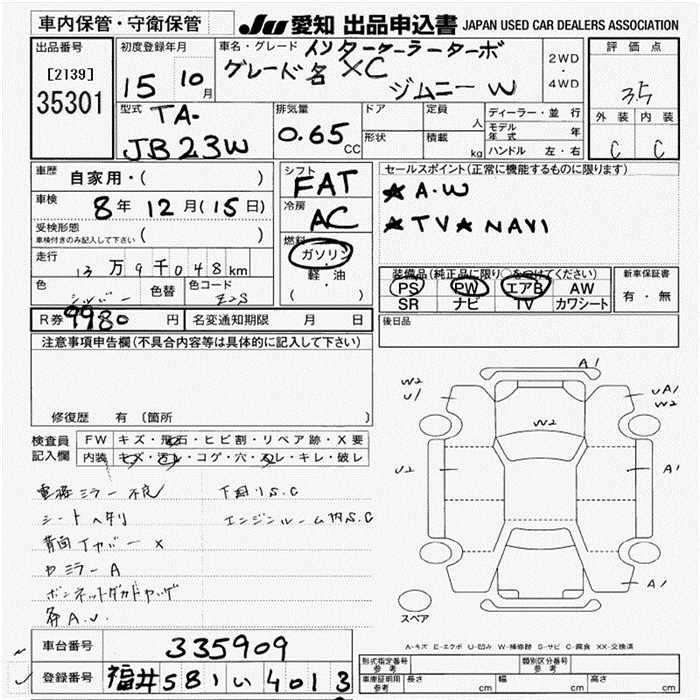 車内保管・守衛保管
JU 愛知 出品申込書 JAPAN USED CAR DEALERS ASSOCIATION
出品番号
[2139]
35301
初度登録年月
15 10月
車名・グレード インタークーラーターボ
グレード名 XC
ジムニー W
2WD
・
4WD
評価点
3.5
外装 内装
C C
型式 TA-
JB23W
排気量
0.65 CC
ドア
形状
定員 人
積載 kg
ディーラー・並行
モデル年式 年
ハンドル 左・右
車歴 自家用・( )
車検 8年 12月(15日)
受検形態
車検付きのみ記入して下さい ( )
走行
13万9千048km
色 シルバー 色替 色コード Z2S
R券 9980 円 名変通知期限 月 日
シフト
FAT
冷房
AC
燃料
ガソリン
・
軽・油
( )
セールスポイント(正常に機能するものに限ります)
★ A・W
★ TV ★ NAVI
装備品(純正品に限り○をつけてください)
PS PW エアB AW
SR ナビ TV カワシート
新車保証書
有・無
後日品
注意事項申告欄(不具合内容等は具体的に記入して下さい)
修復歴 有 〔箇所 〕
検査員
記入欄
FW キズ・飛石・ヒビ割・リペア跡・X要
内装 キズ・汚レ・コゲ・穴・スレ・キレ・破レ
電格ミラー不良
シートヘタリ
背面Tカバー X
ミラー A
各A.U.
下回りS.C
エンジンルーム内S.C
A1
W2
U1
UA1
W2
W2
U2
A1
A1
スペア
A-キズ E-エクボ U-凹み W-補修跡 S-サビ C-腐食 XX-交換済
車台番号 335909
登録番号 福井581 い 4013
型式指定番号
参考
類別区分番号
参考
車庫証明用
参考
長さ cm 幅 cm 高さ cm